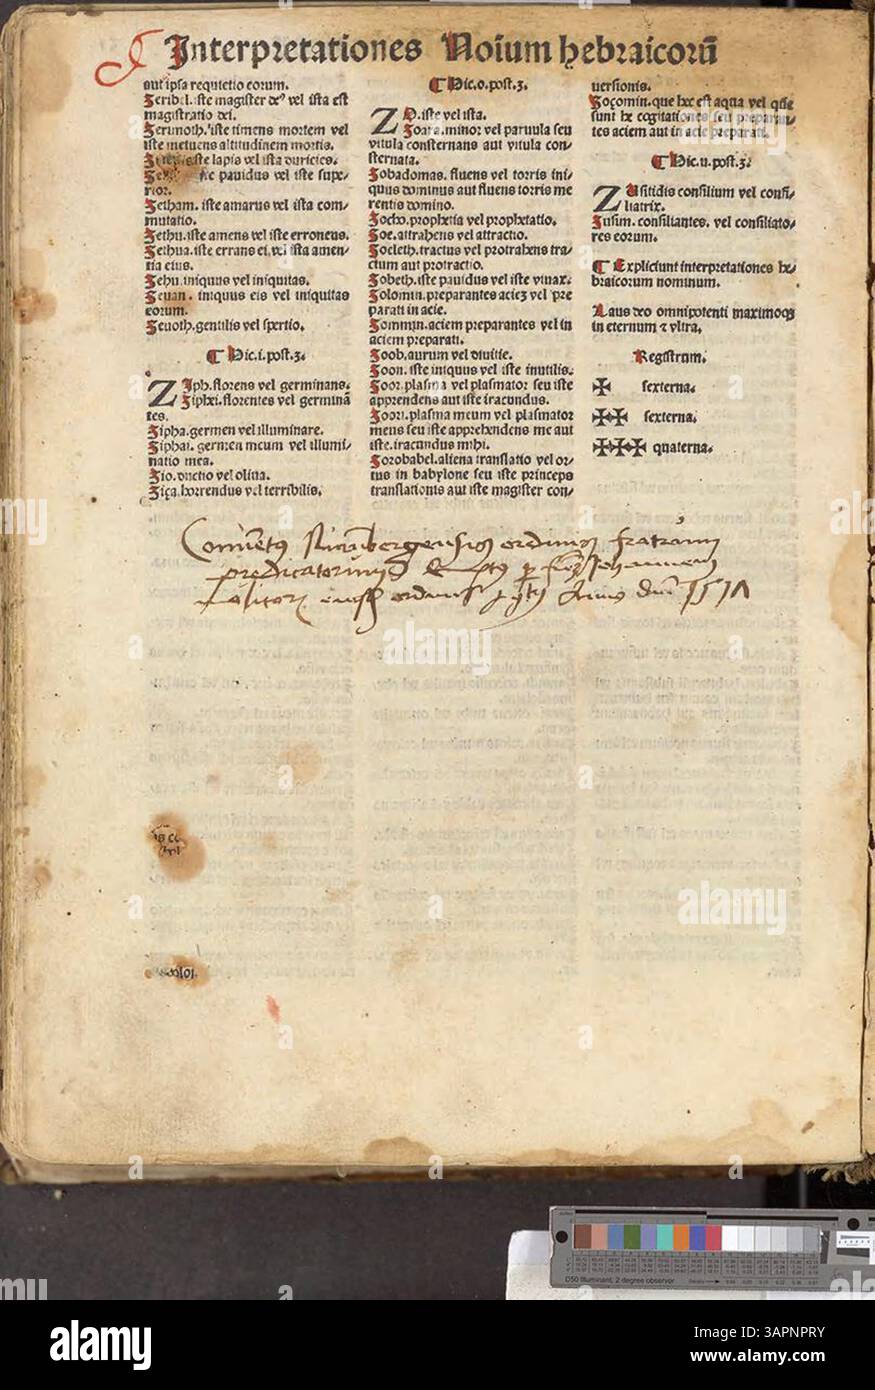 Interpretationes Noium hebraicorū
aut ipsa requietio eorum.
Seribel. iste magister deꝰ vel ista est
magistratio dei.
Zerimoth. iste timens mortem vel
iste metuens altitudinem mortis.
iste lapis vel ista duricies.
pauidus vel iste supe-
rior.
Zetham. iste amarus vel ista com-
mutatio.
Zethu. iste amens vel iste erroneus.
Zethua. iste errans ei. vel ista amen-
tia eius.
Zehu. iniquus vel iniquitas.
Zeuan. iniquus eis vel iniquitas
eorum.
Zeuoth. gentilis vel spertio.
Dic. i. post. 3.
ZIph. florens vel germinans.
Ziphei. florentes vel germinā
tes.
Zipha. germen vel illuminare.
Ziphai. germen meum vel illumi-
natio mea.
Zio. ductio vel oliua.
Ziça. horrendus vel terribilis.
Dic. o. post. 3.
ZO. iste vel ista.
Zoara. minor vel paruula seu
vitula consternans aut vitula con-
sternata.
Zobadomas. fluens vel torris ini-
quus dominus aut fluens torris me
rentis domino.
Zocho. prophetia vel prophetatio.
Zoe. attrahens vel attractio.
Zoeleth. tractus vel protrahens tra-
ctum aut protractio.
Zobeth. iste pauidus vel iste viuax.
Zolomin. preparantes aciez vel pre
parati in acie.
Zommin. aciem preparantes vel in
aciem preparati.
Zoob. aurum vel diuitie.
Zoon. iste iniquus vel iste inutilis.
Zoor. plasma vel plasmator seu iste
apprendens aut iste iracundus.
Zoori. plasma meum vel plasmator
meus seu iste apprehendens me aut
iste. iracundus mihi.
Zorobabel. aliena translatio vel or-
tus in babylone seu iste princeps
translationis aut iste magister con-
uersionis.
Zoçomin. que hec est aqua vel qͥ iste
sunt he cogitationes seu preparan-
tes aciem aut in acie preparati.
Dic. u. post. 3.
ZUsitidis consilium vel consi-
liatrix.
Zusim. consiliantes. vel consiliato-
res eorum.
Expliciunt interpretationes he-
braicorum nominum.
Laus deo omnipotenti maximoqꝫ
in eternum ⁊ vltra.
Registrum.
✠ sexterna.
✠✠ sexterna.
✠✠✠ quaterna.
Conuētꝰ Nurmbergensis ordinis fratrum
predicatorum Emptꝰ p frēꝫ Johannem
ordinis Anno dn̄i 1517
alamy
Image ID: 3APNPRY
www.alamy.com